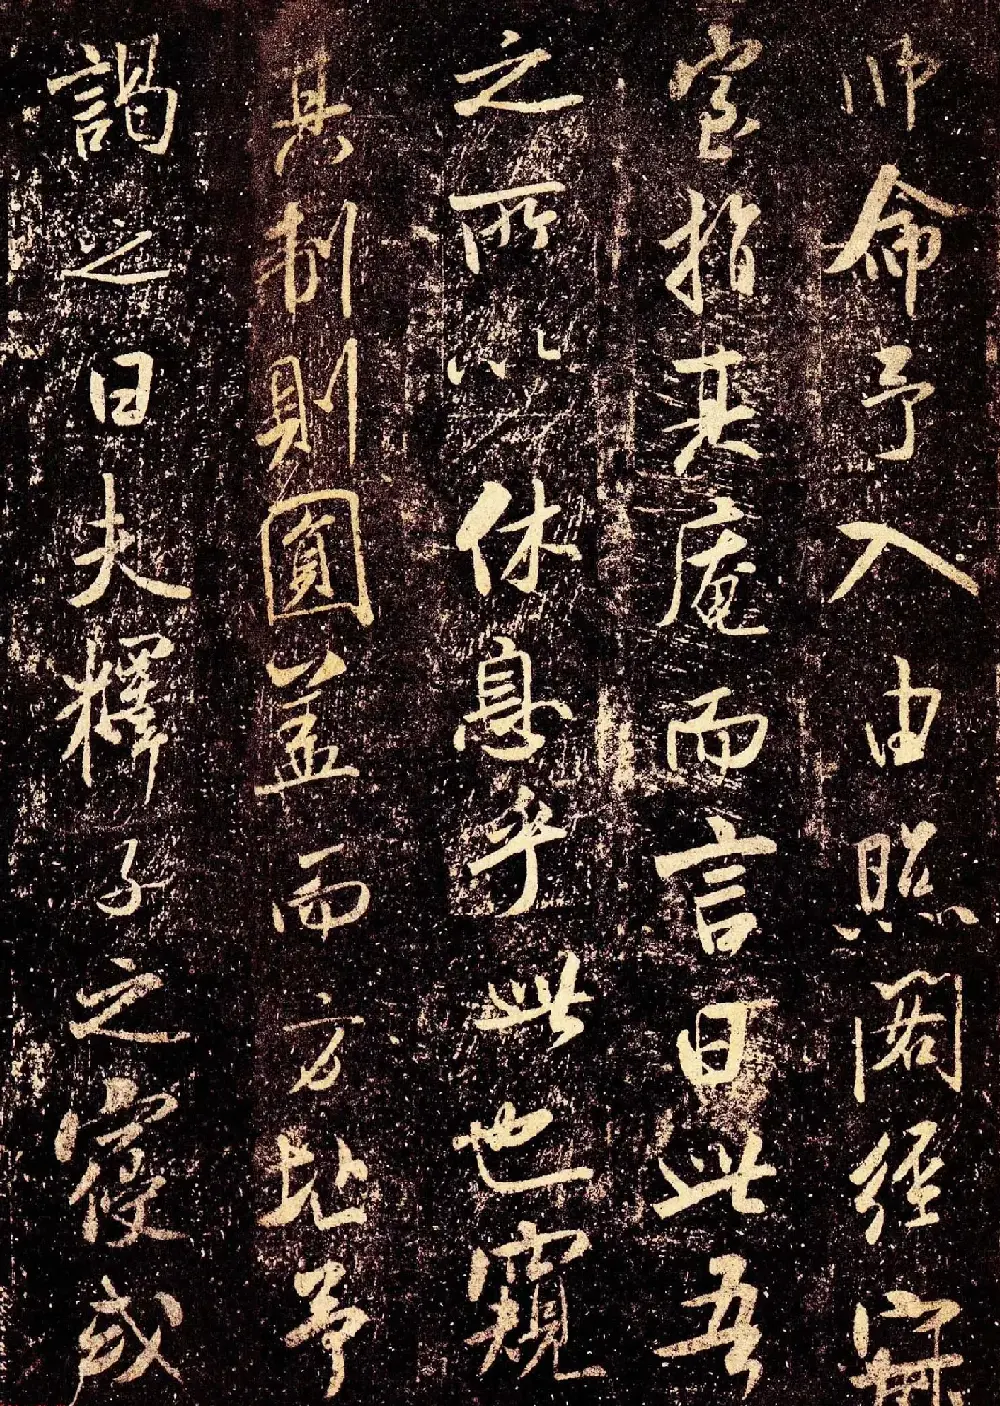 師命予入由照閣經寂
室指其庵而言曰此吾
之所以休息乎此也窺
其制則圓盖而方址予
謁之曰夫釋子之寢或